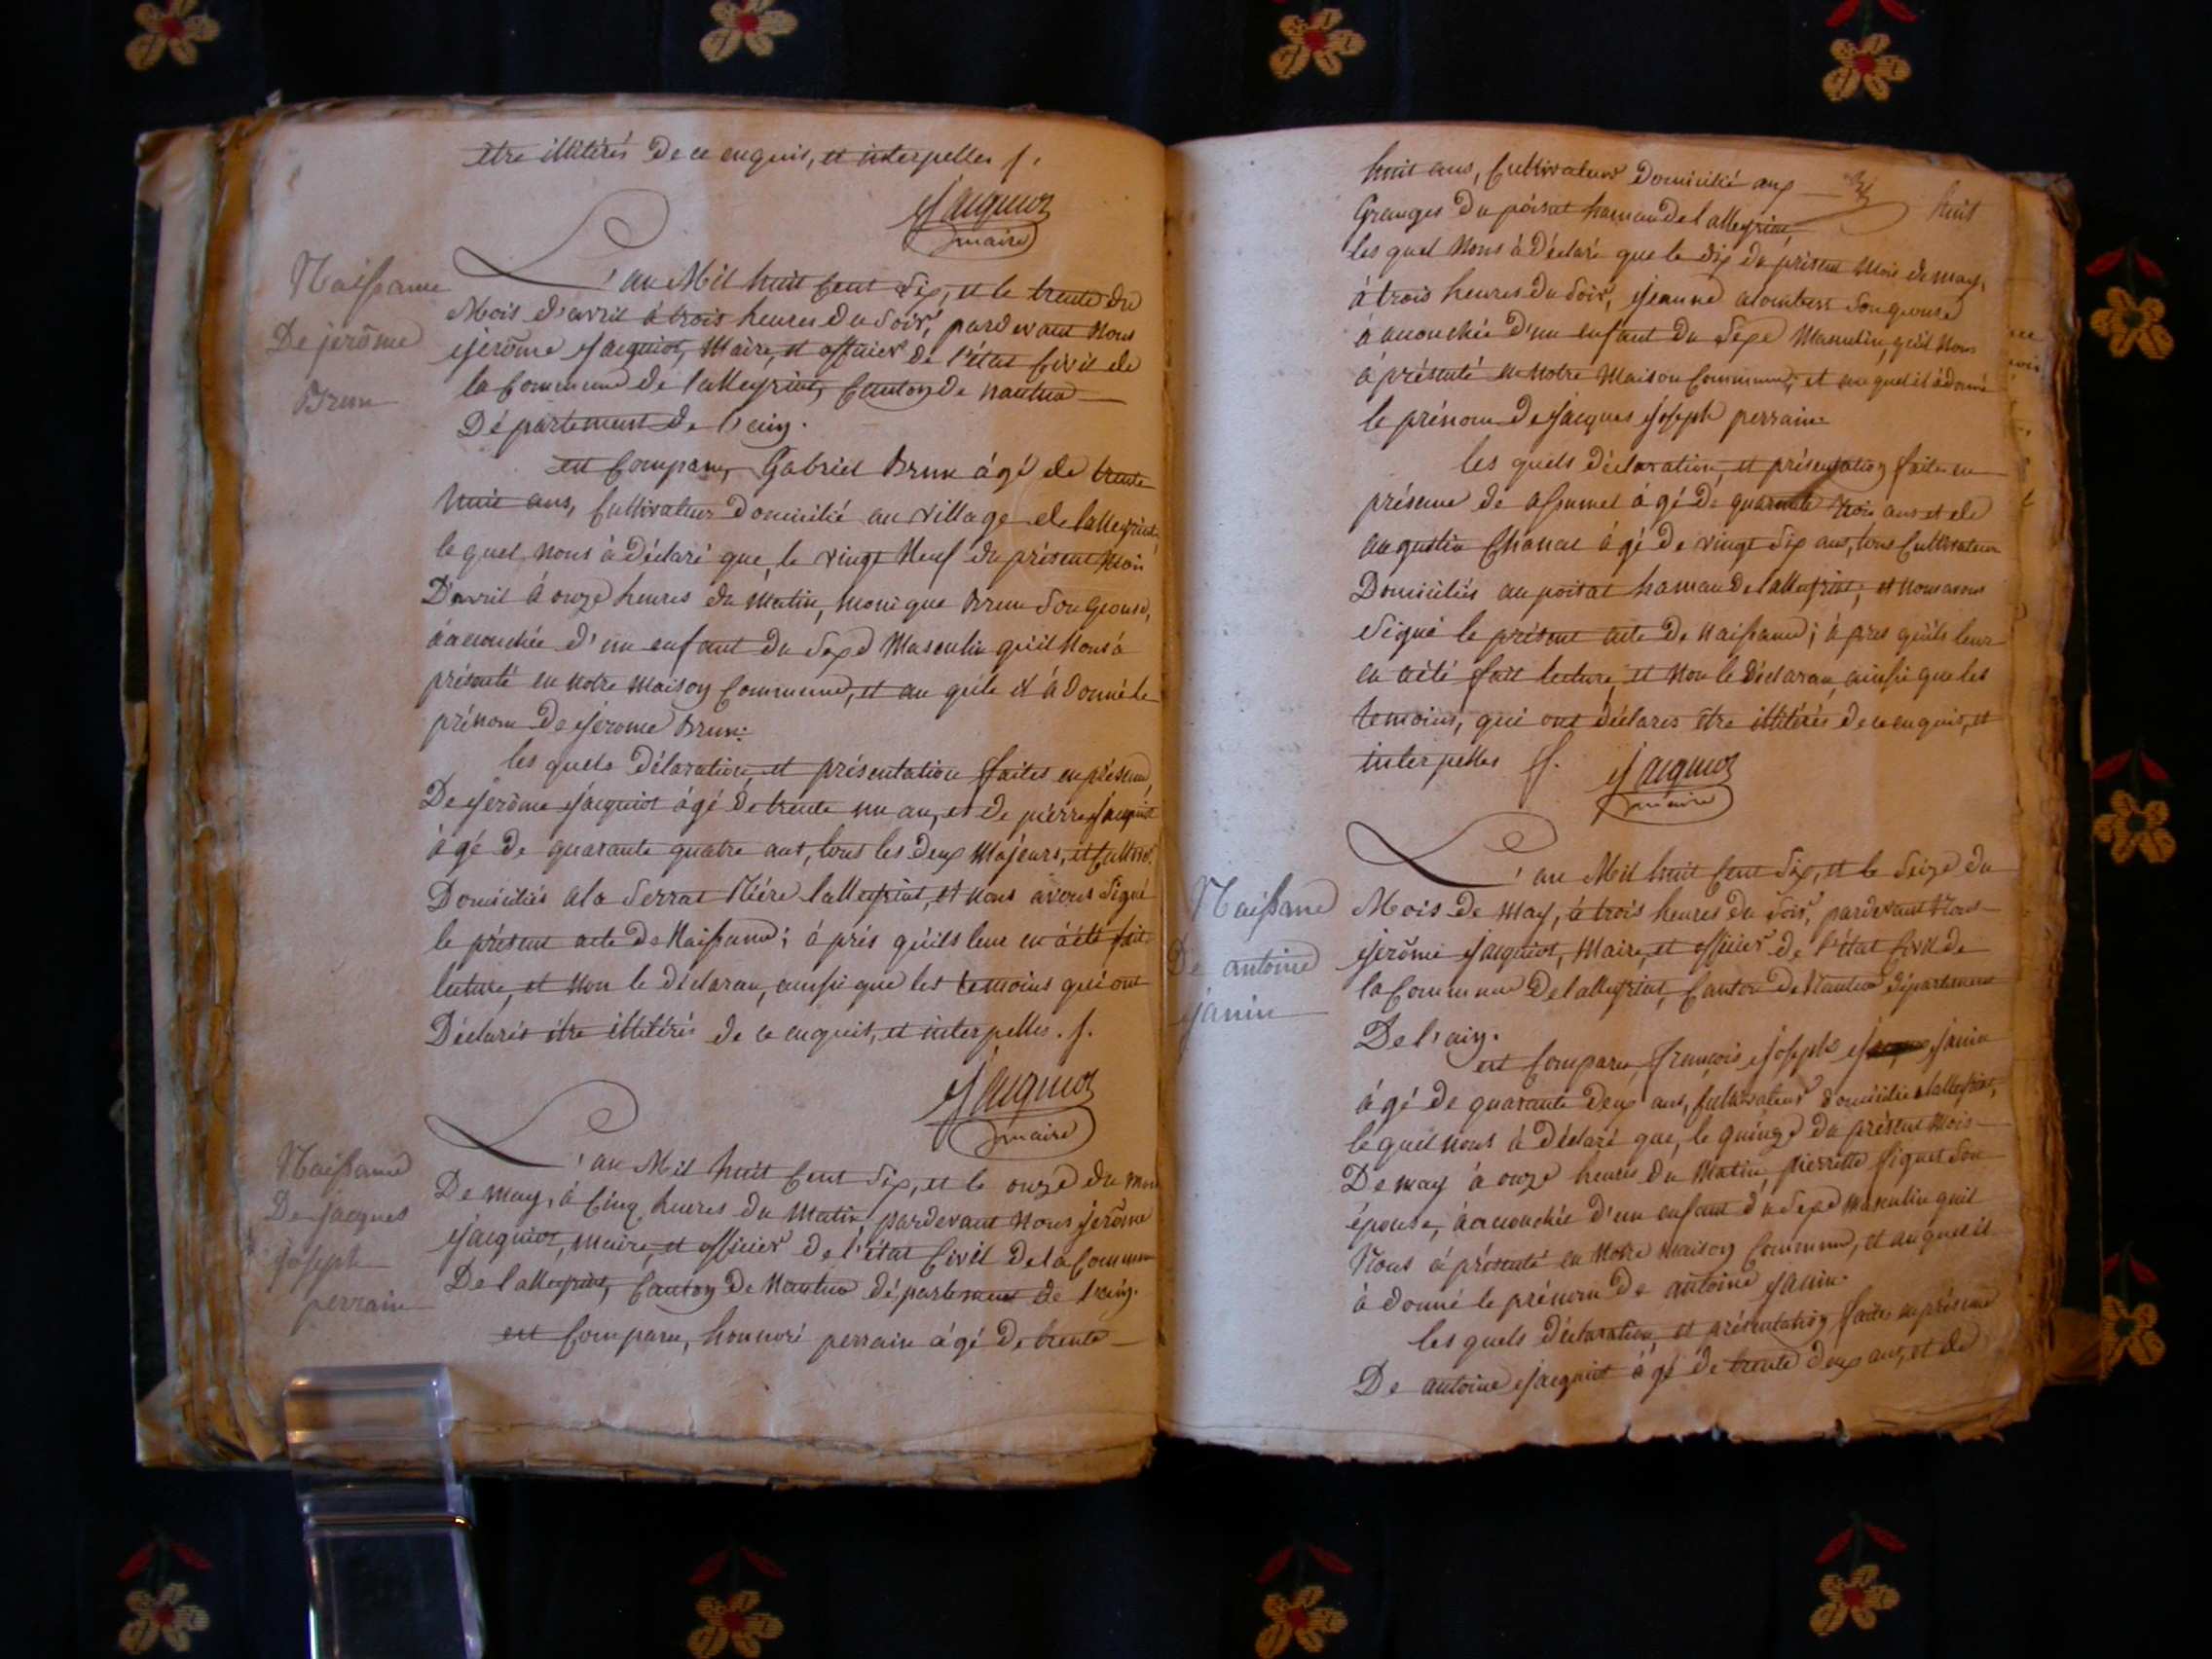 être illitérés de ce enquis, et interpelles f.
Jacquiot
maire
Naissance
De jerôme
Brun
L'an Mil huit Cent dix, et le trente du
Mois d'avril à trois heures du soir, pardevant Nous
jerôme jacquiot, Maire, et officier de l'état Civil de
la Commune de lalleyriat, Canton de nantua
Département de l'ain.
est Comparu, Gabriel Brun âgé de trente
huit ans, Cultivateur Domicilié au village de lalleyriat,
lequel nous à Déclaré que, le vingt Neuf du présent Mois
D'avril à onze heures du Matin, monique Brun Son épouse,
à acouchée d'un enfant du Sexe Masculin qu'il Nous à
présenté en notre maison Commune, et au quel il à donné le
prénom De jérome Brun.
les quels Déclaration, et présentation faites en présence,
De jerôme jacquiot âgé de trente un an, et de pierre jacquiot
âgé De quarante quatre ans, tous les deux Majeurs, et Cultivs.
Domiciliés a la Serrat Rière lalleyriat, et nous avons Signé
le présent acte De Naissance; à près qu'ils leur en à été fait
lecture, et Non le Déclaran, ainsi que les temoins qui ont
Déclarés être illitérés de ce enquis, et interpelles. f.
Jacquiot
maire
Naissance
De jacques
joseph
perrain
L'an Mil huit Cent dix, et le onze du mois
De may, à Cinq heures du Matin, pardevant Nous jerôme
jacquiot, maire, et officier de l'état Civil De la Commune
De lalleyriat, Canton De Nantua département de l'ain.
est Comparu, honnoré perrain âgé De trente
huit ans, Cultivateur Domicilié aux
huit
Granges Du poisat hamau De lalleyriat,
les quel Nous à Déclaré que le dix du présent Mois de may,
à trois heures du Soir, jeanne Son épouse
à acouchée d'un enfant du Sexe Masculin, qu'il Nous
à présenté en Notre Maison Commune, et au quel il à donné
le prénom De jacques joseph perrain.
les quels déclaration, et présentation faites en
présence de âgé De quarante trois ans et de
augustin âgé De vingt Six ans, tous Cultivateur
Domiciliés au poisat hamau De lalleyriat; et nous avons
Signé le présent acte De Naissance; à près qu'ils leur
en à été fait lecture, et Non le Déclaran, ainsi que les
temoins, qui ont déclarés être illitérés de ce enquis, et
interpelles ff.
Jacquiot
maire
Naissance
De antoine
janin
L'an Mil huit Cent dix, et le Seize du
Mois De May, à trois heures du soir, pardevant Nous
jerôme jacquiot, Maire, et officier de l'état Civil de
la Commune De lalleyriat, Canton De Nantua département
De l'ain.
est Comparu, françois joseph janin
âgé De quarante Deux ans, Cultivateur domicilié a lalleyriat,
lequel nous à Déclaré que, le quinze du présent Mois
De may à onze heures du Matin, pierrette Son
épouse, à acouchée d'un enfant du Sexe masculin qu'il
Nous à présenté en Notre maison Commune, et au quel il
à donné le prénom De antoine janin.
les quels déclaration, et présentation faites en présence
De antoine jacquiot âgé De trente deux ans, et de